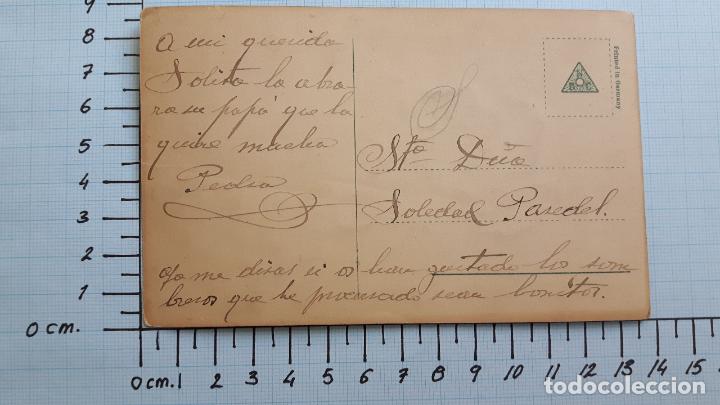 A mi querida
Solita la abra
za su papá que la
quiere mucho
Pedro
Printed in Germany
N
B C
Sta Dña
Soledad Paredel.
Ya me diras si os han gustado los som
breros que he procurado sean bonitos.
9
8
7
6
5
4
3
2
1
0 cm.
0 cm. 1 2 3 4 5 6 7 8 9 10 11 12 13 14 15
todocoleccion